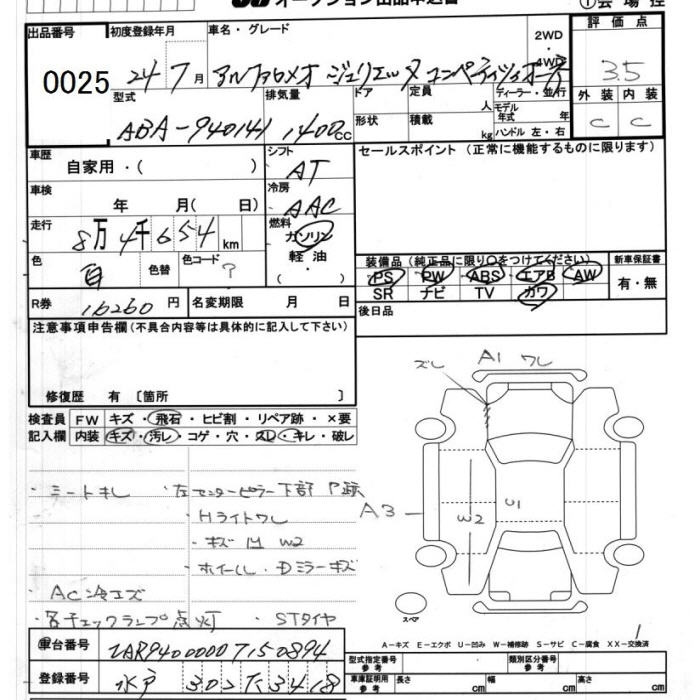 オークション出品申込書
出品番号 初度登録年月 車名・グレード 2WD・4WD 評価点
0025 24 7月 アルファロメオ ジュリエッタ コンペティツィオーネ 3.5
型式 排気量 ドア 定員 人 ディーラー・並行 外装 内装
ABA-940141 1400cc 形状 積載 kg モデル年式 年 ハンドル 左・右 C C
車歴 自家用・( ) シフト AT セールスポイント (正常に機能するものに限ります)
車検 年 月( 日) 冷房 AAC
走行 8万4千654km 燃料 ガソリン
軽油
( )
色 白 色替 色コード ?
装備品 (純正品に限り○をつけてください) 新車保証書
PS PW ABS エアB AW 有・無
SR ナビ TV カワ
R券 16260円 名変期限 月 日 後日品
注意事項申告欄(不具合内容等は具体的に記入して下さい)
修復歴 有 [箇所 ]
検査員 FW キズ・飛石・ヒビ割・リペア跡・×要
記入欄 内装 キズ・汚レ・コゲ・穴・スレ・キレ・破レ
ズレ A1 ワレ
・シートキレ ・左センターピラー下部 P跡
・Hライトワレ
・キズ 凹 W2
・ホイール・Dミラーキズ
A3 W2 S1
・AC冷エズ
・各チェックランプ点灯 ・STタイヤ
スペア
A−キズ E−エクボ U−凹み W−補修跡 S−サビ C−腐食 XX−交換済
車台番号 ZAR94000007150894
型式指定番号 参考 類別区分番号 参考
登録番号 水戸 302 3418
車庫証明用 参考 長さ cm 幅 cm 高さ cm